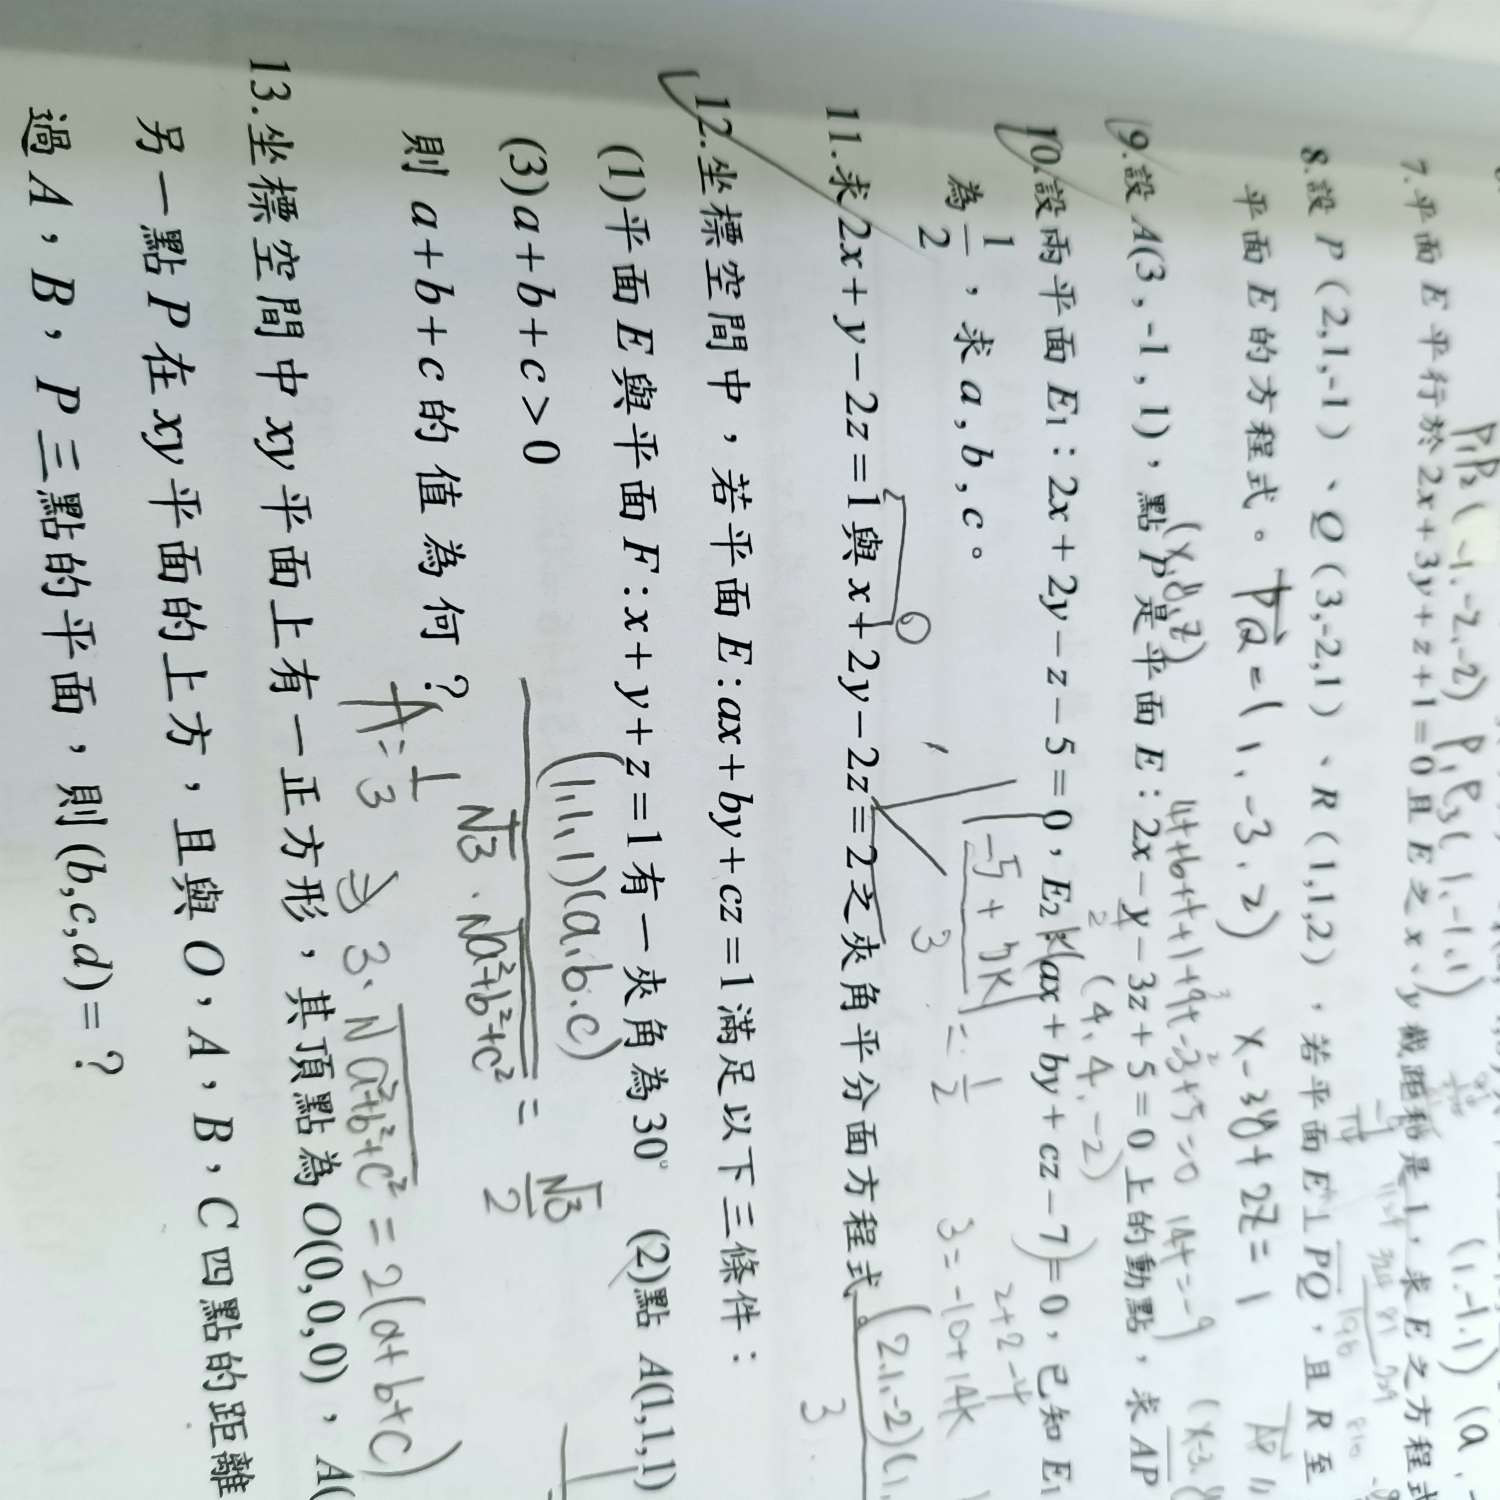 P₁P₂(-1,-2,-2) P₁P₃(1,-1,1) (1,-1,1)
7.平面 E 平行於 2x+3y+z+1=0 且 E 之 x、y 截距和是 1，求 E 之方程式
8.設 P（2,1,-1）、Q（3,-2,1）、R（1,1,2），若平面 E⊥PQ，且 R 至
平面 E 的方程式。 PQ=(1,-3,2) x-3y+2z=1
(x,y,z) 14t=-9
9.設 A(3,-1,1)，點 P 是平面 E：2x-y-3z+5=0 上的動點，求 AP
(4,4,-2)
10.設兩平面 E₁：2x+2y-z-5=0，E₂ k(ax+by+cz-7)=0，已知 E₁
為 1/2，求 a,b,c。 |-5+7k| / 3 = 1/2 3=-10+14k
11.求 2x+y-2z=1 與 x+2y-2z=2 之夾角平分面方程式。
(2,1,-2)(1,
12.坐標空間中，若平面 E:ax+by+cz=1 滿足以下三條件：
(1)平面 E 與平面 F:x+y+z=1 有一夾角為 30° (2)點 A(1,1,1)
(3)a+b+c>0
(1,1,1)(a,b,c) / √3·√a²+b²+c² = √3/2
則 a+b+c 的值為何？
A=1/3 3·√a²+b²+c²=2(a+b+c)
13.坐標空間中 xy 平面上有一正方形，其頂點為 O(0,0,0)，A(
另一點 P 在 xy 平面的上方，且與 O，A，B，C 四點的距離
過 A，B，P 三點的平面，則(b,c,d)=？